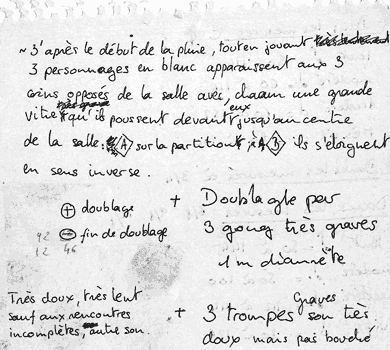 ~ 3' après le début de la pluie, tout en jouant
3 personnages en blanc apparaissent aux 3
coins opposés de la salle avec, chacun une grande
vitre qu'ils poussent devant eux jusqu'au centre
de la salle. A sur la partition, à B ils s'éloignent
en sens inverse.
+ doublage
- fin de doublage
42
12 46
+ Doublage par
3 gong très graves
1 m diamètre
Très doux, très lent
sauf aux rencontres
incomplètes, autre son.
+ 3 trompes graves son très
doux mais pas bouché